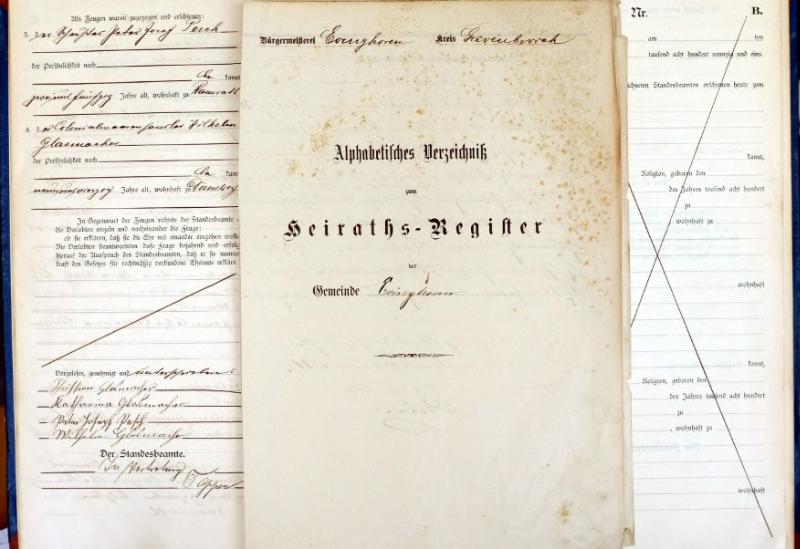 Als Zeugen waren zugezogen und erschienen:
3. der
Peter Josef Pesch
der Persönlichkeit nach
kannt,
zweiundfünfzig Jahre alt, wohnhaft zu Ramrath
4. der Colonialwaarenhändler Wilhelm
Glasmacher
der Persönlichkeit nach
kannt,
neunundzwanzig Jahre alt, wohnhaft zu
In Gegenwart der Zeugen richtete der Standesbeamte
die Verlobten einzeln und nacheinander die Frage:
ob sie erklären, daß sie die Ehe mit einander eingehen wolle
Die Verlobten beantworteten diese Frage bejahend und erfolg
hierauf der Ausspruch des Standesbeamten, daß er sie nunme
kraft des Gesetzes für rechtmäßig verbundene Eheleute erkläre.
Vorgelesen, genehmigt und unterschrieben:
Glasmacher
Katharina Glasmacher
Peter Joseph Pesch
Wilhelm Glasmacher
Der Standesbeamte.
In Vertretung
Bürgermeisterei Evinghoven Kreis Grevenbroich
Alphabetisches Verzeichniß
zum
Heiraths-Register
der
Gemeinde Evinghoven
Nr. B.
am ten
tausend acht hundert neunzig und eins.
chneten Standesbeamten erschienen heute zum
kannt,
Religion, geboren den
des Jahres tausend acht hundert
zu
wohnhaft zu
wohnhaft
kannt,
Religion, geboren den
des Jahres tausend acht hundert
zu
, wohnhaft zu
wohnhaft